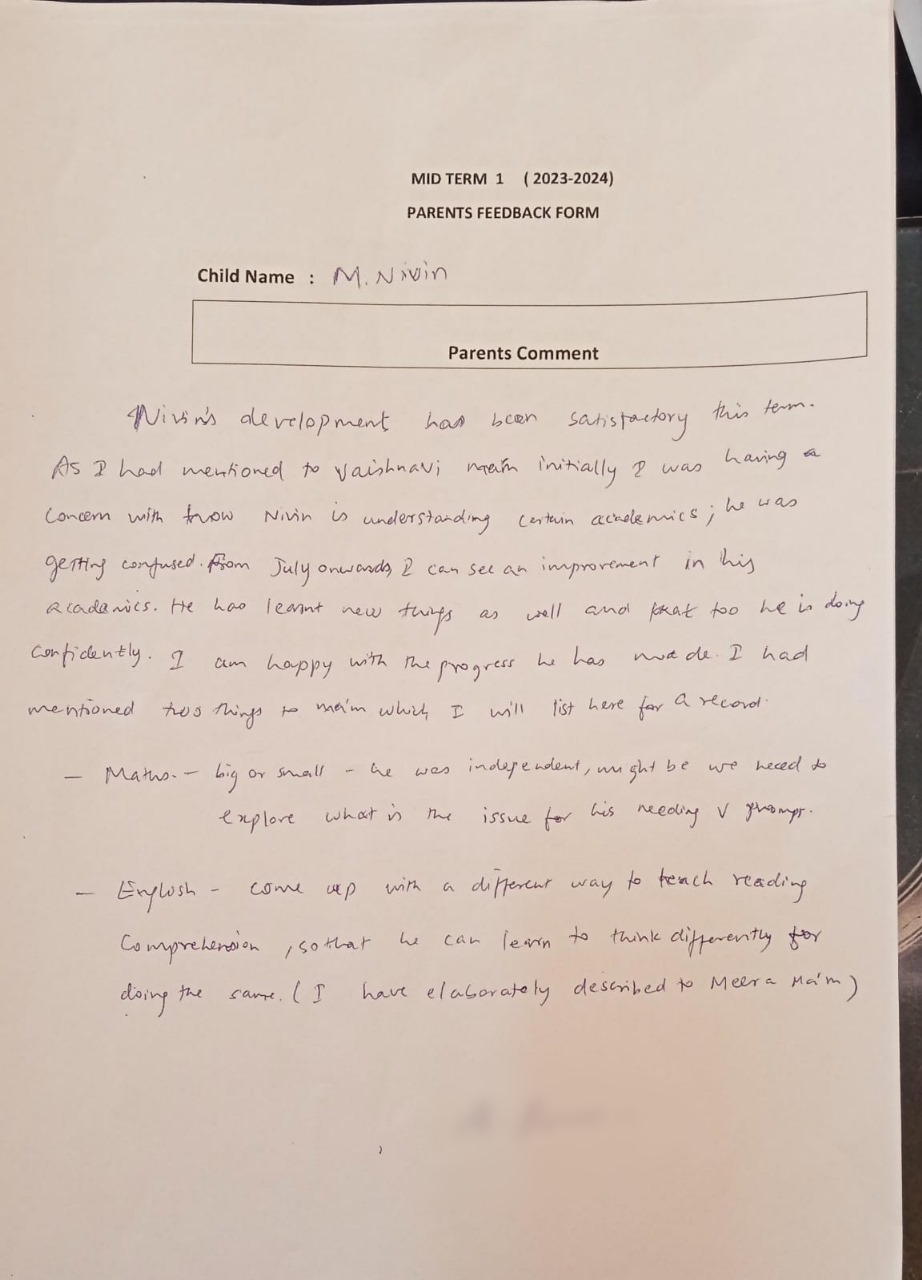 MID TERM 1 ( 2023-2024)
PARENTS FEEDBACK FORM
Child Name : M. Nivin
Parents Comment
Nivin's development has been satisfactory this term.
As I had mentioned to Vaishnavi ma'm initially I was having a
concern with how Nivin is understanding certain academics; he was
getting confused. From July onwards, I can see an improvement in his
academics. He has learnt new things as well and that too he is doing
confidently. I am happy with the progress he has made. I had
mentioned two things to ma'm which I will list here for a record.
- Maths. - big or small - he was independent, might be we need to
explore what is the issue for his needing V prompt.
- English - come up with a different way to teach reading
Comprehension, so that he can learn to think differently for
doing the same. ( I have elaborately described to Meera Ma'm )